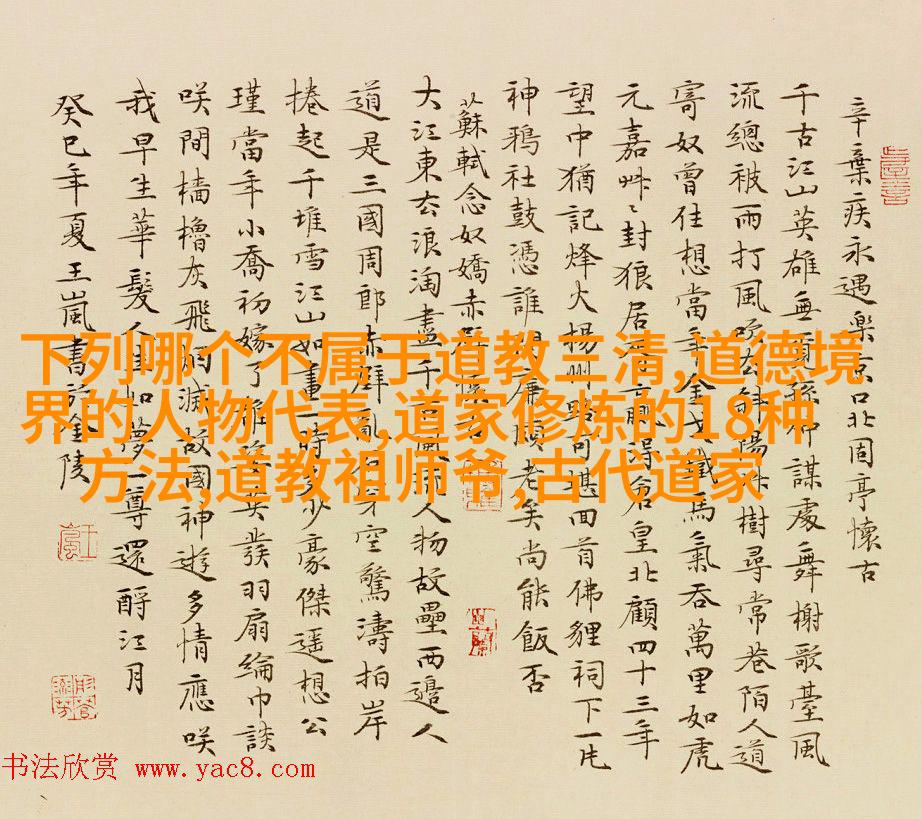 辛棄疾永遇樂京口北固亭懷古
千古江山英雄無覓孫仲謀處舞榭歌臺風
流總被雨打風吹去斜陽草樹尋常巷陌人道
寄奴曾住想當年金戈鐵馬氣吞萬里如虎
元嘉艸〻封狼居胥贏得倉皇北顧四十三年
望中猶記烽火揚州路可堪回首佛貍祠下一片
神鴉社鼓憑誰問廉頗老矣尚能飯否
蘇軾念奴嬌赤壁懷古
大江東去浪淘盡千古風流人物故壘西邊人
道是三國周郎赤壁亂石穿空驚濤拍岸
捲起千堆雪江山如畫一時多少豪傑遙想公
瑾當年小喬初嫁了雄姿英發羽扇綸巾談
咲間檣櫓灰飛煙滅故國神遊多情應咲
我早生華髮人生如夢一尊還酹江月
癸巳年夏王嵐書於金陵
下列哪个不属于道教三清,道德境
界的人物代表,道家修炼的18种
方法,道教祖师爷,古代道家
书法欣赏 www.yac8.com